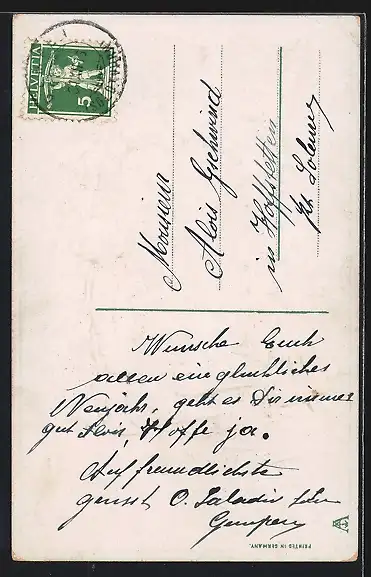 HELVETIA
5
Monsieur
Alois Gschwind
in Hofstetten
Kt Soleure
Wünsche Euch
allen ein glückliches
Neujahr, geht es Dir immer
gut Hoffe ja.
Auf freundlichste
grüsst O. Saladin
PRINTED IN GERMANY.